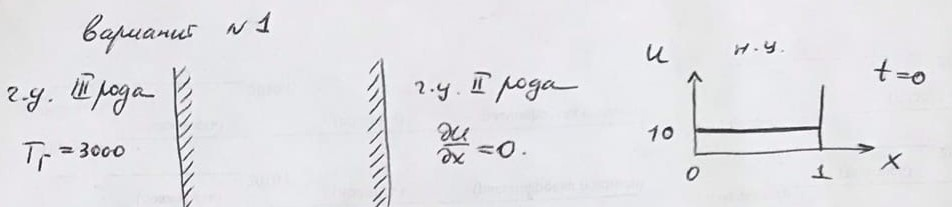 Вариант № 1
г.у. III рода
T_г = 3000
г.у. II рода
∂u/∂x = 0.
u
н.у.
t=0
10
0
1
x